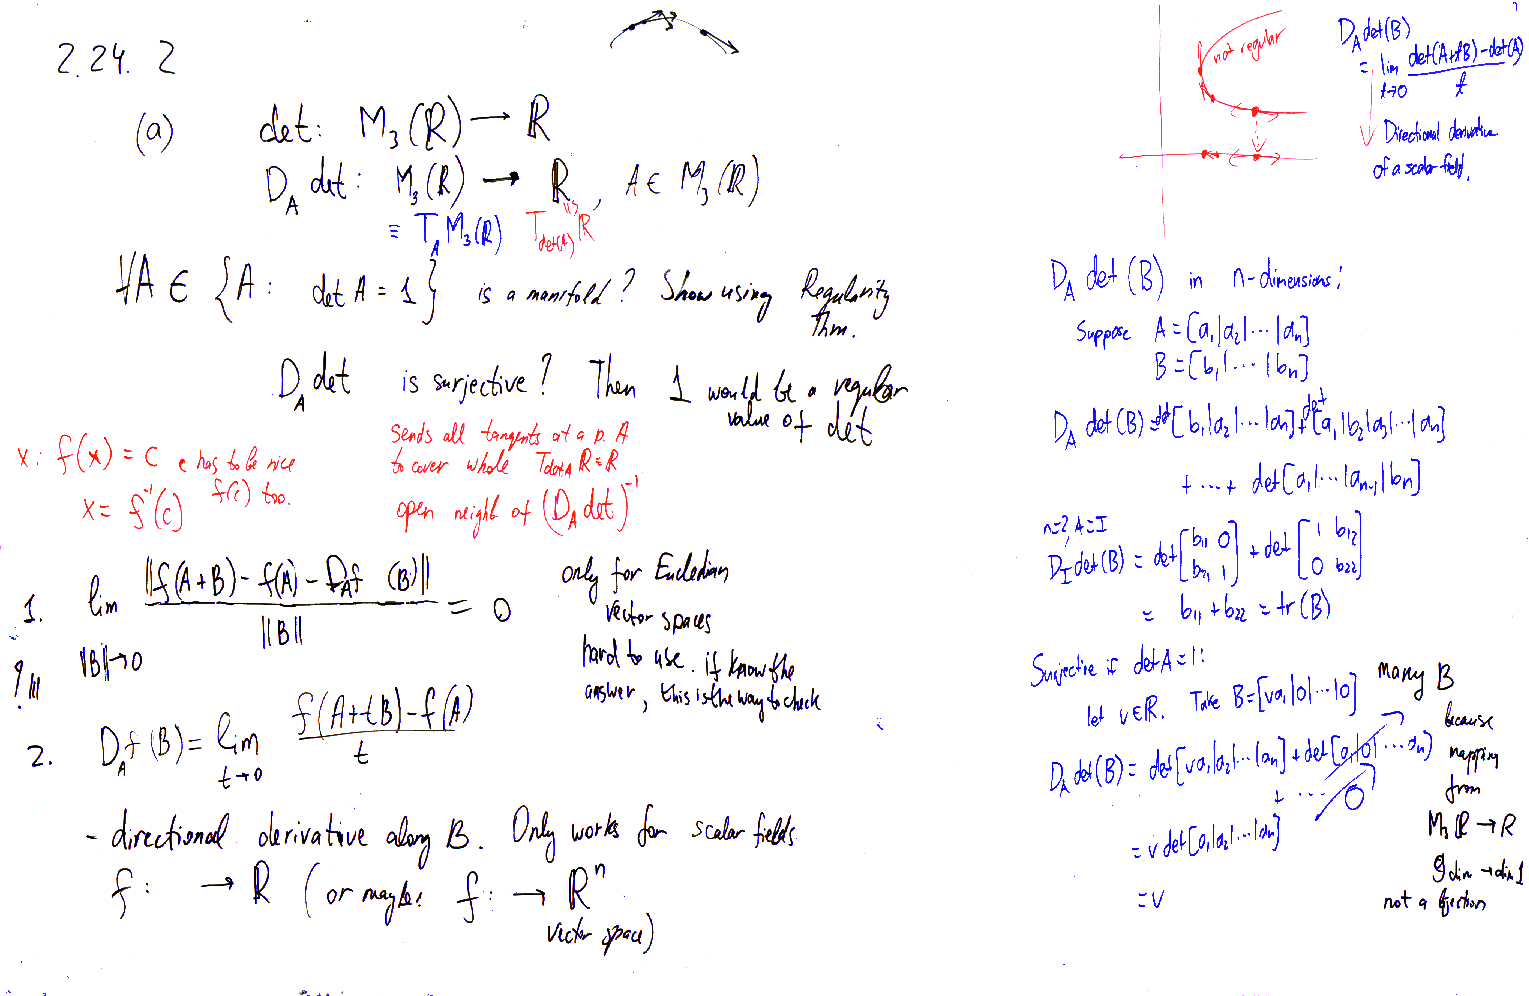 2.24. 2
(a) det: M₃(ℝ) → ℝ
D_A det: M₃(ℝ) → ℝ, A ∈ M₃(ℝ)
≡ T_A M₃(ℝ) T_det(A) ℝ
∀A ∈ {A: det A = 1} is a manifold? Show using Regularity
Thm.
D_A det is surjective? Then 1 would be a regular
value of det
x: f(x) = c c has to be nice
x = f⁻¹(c) f(c) too.
sends all tangents at a p. A
to cover whole T_det A ℝ = ℝ
open neighb of (D_A det)⁻¹
1. lim ‖B‖→0 ‖f(A+B) - f(A) - D_A f (B)‖ / ‖B‖ = 0
only for Eucledian
vector spaces
hard to use. if know the
answer, this is the way to check
2. D_A f(B) = lim t→0 f(A+tB) - f(A) / t
- directional derivative along B. Only works for scalar fields
f: → ℝ (or maybe: f: → ℝⁿ
vector space)
not regular
D_A det(B)
= lim t→0 det(A+tB) - det(A) / t
Directional derivative
of a scalar field.
D_A det (B) in n-dimensions:
Suppose A = [a₁|a₂|⋯|aₙ]
B = [b₁|⋯|bₙ]
D_A det(B) = det[b₁|a₂|⋯|aₙ] + det[a₁|b₂|a₃|⋯|aₙ]
+ ⋯ + det[a₁|⋯|aₙ₋₁|bₙ]
n=2, A=I
D_I det(B) = det[b₁₁ 0; b₂₁ 1] + det[1 b₁₂; 0 b₂₂]
= b₁₁ + b₂₂ = tr(B)
Surjective if det A = 1:
let v ∈ ℝ. Take B = [va₁|0|⋯|0]
D_A det(B) = det[va₁|a₂|⋯|aₙ] + det[a₁|0|⋯aₙ]
+ ⋯ 0
= v det[a₁|a₂|⋯|aₙ]
= v
many B
because
mapping
from
M₃ℝ → ℝ
9 dim → dim 1
not a bijection